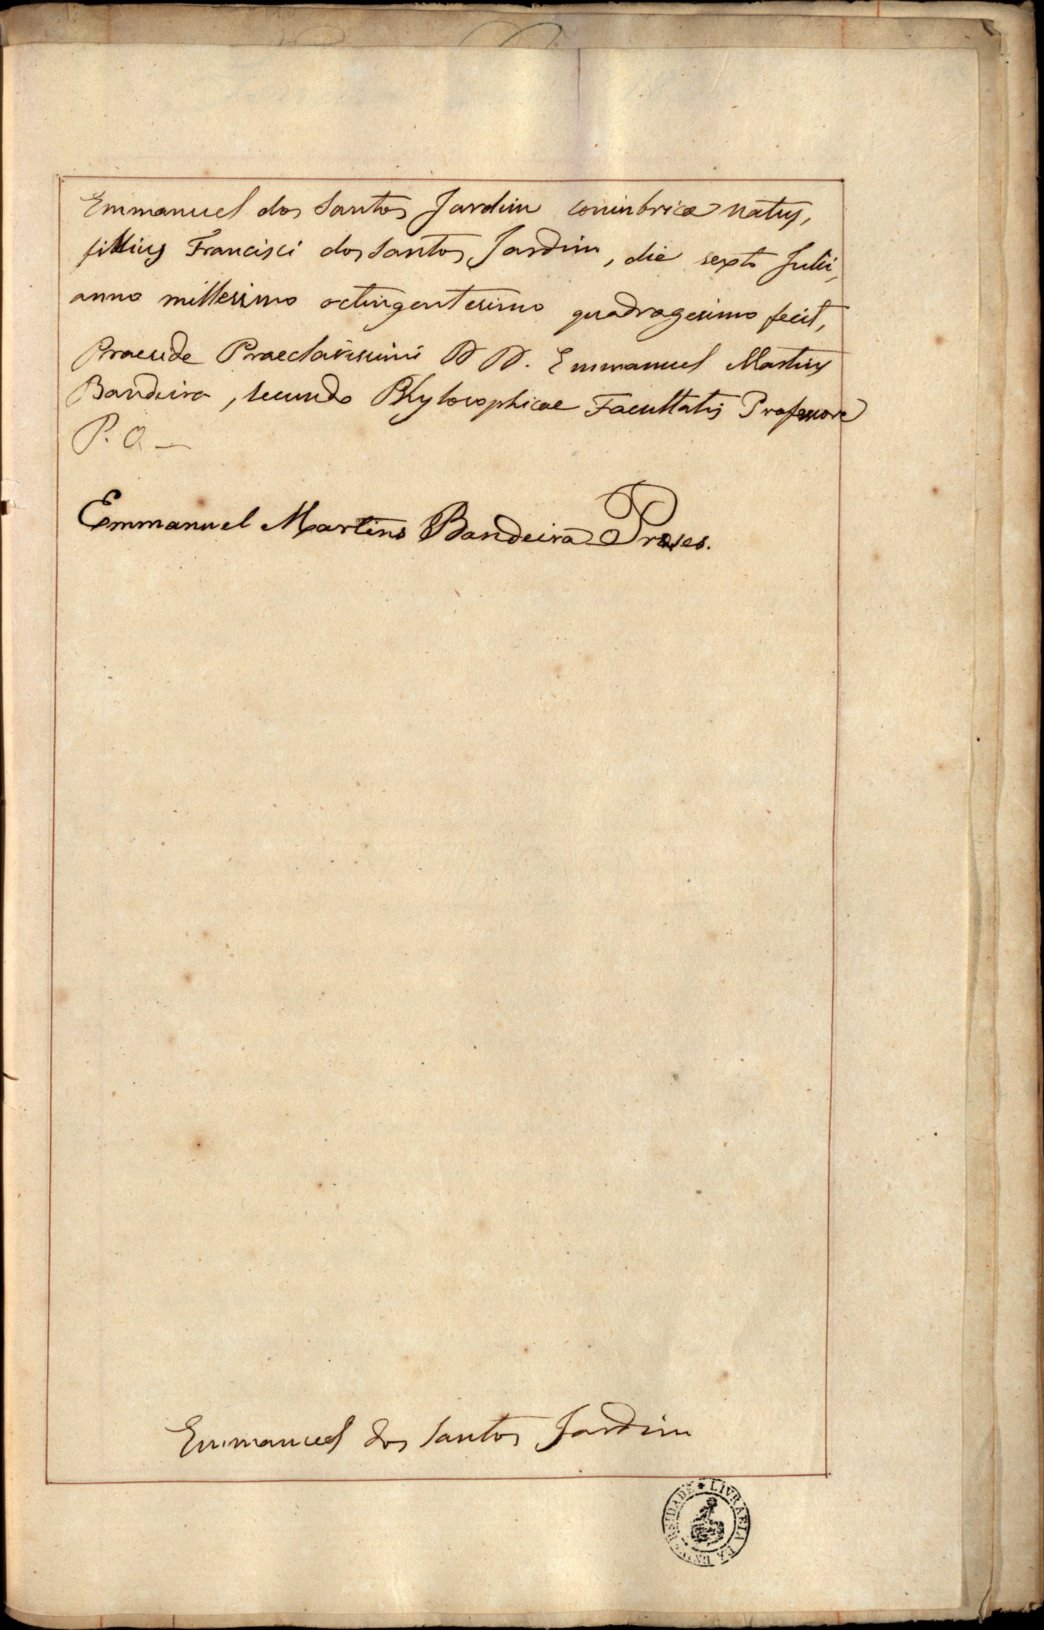 Emmanuel dos Santos Jardim conimbricæ natus,
fillius Francisci dos Santos Jardim, die sexto Julii,
anno millesimo octingentesimo quadragesimo fecit,
Praeside Praeclarissimi D D. Emmanuel Martins
Bandeira, secundo Phylosophicae Facultatis Professore
P. O —
Emmanuel Martins Bandeira Præses.
Emmanuel dos Santos Jardim
LIVRARIA DA UNIVERSIDADE